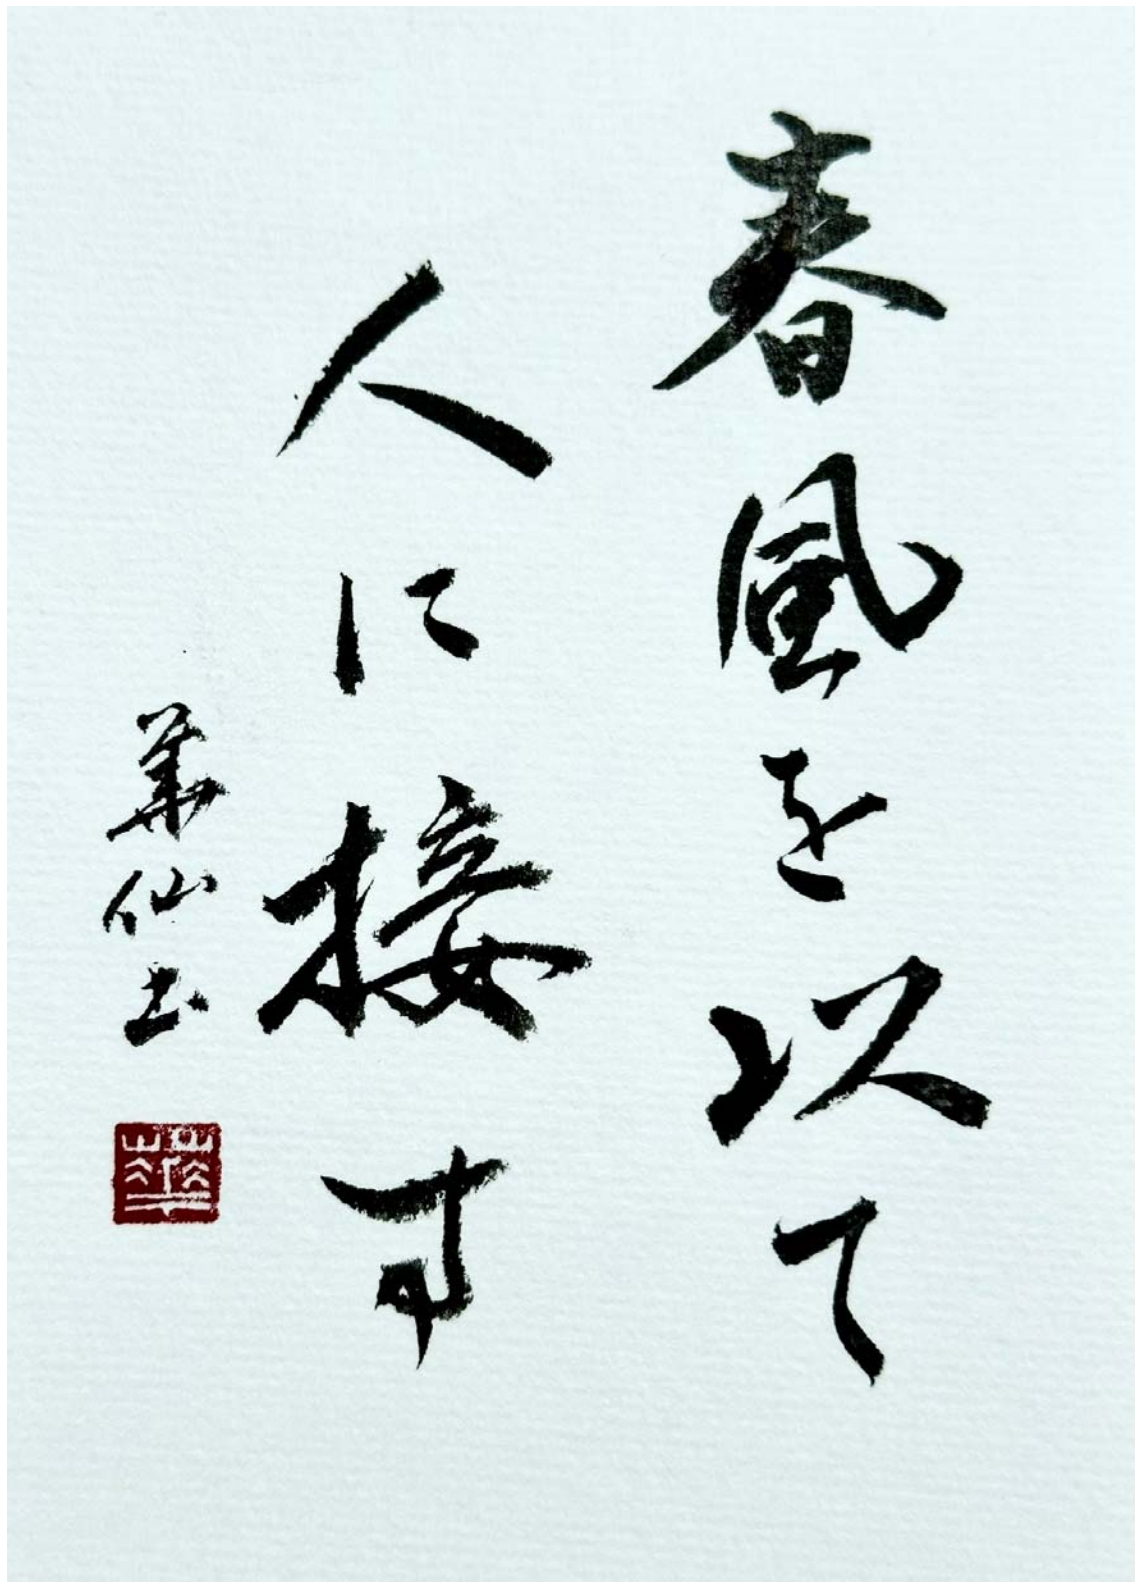 春風を以て
人に接す
華仙書
華